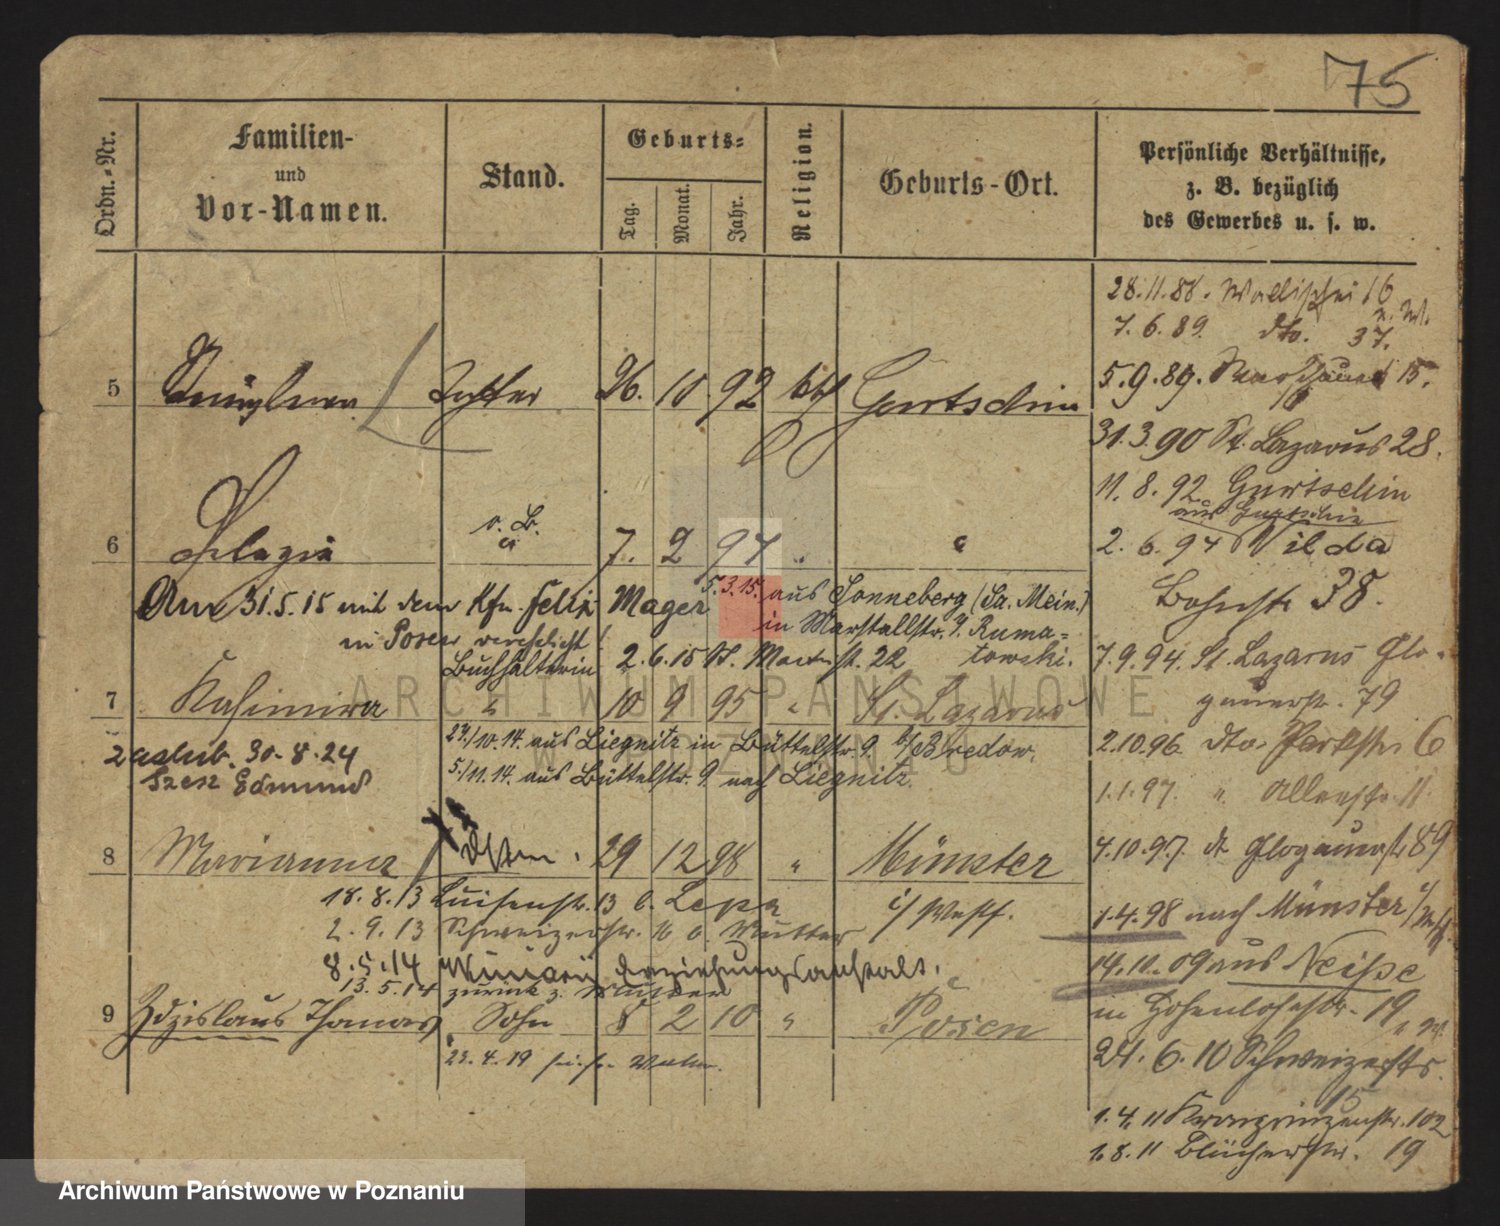 75
Ordn.-Nr.
Familien-
und
Vor-Namen.
Stand.
Geburts-
Tag.
Monat.
Jahr.
Religion.
Geburts-Ort.
Persönliche Verhältnisse,
z. B. bezüglich
des Gewerbes u. s. w.
28.11.88. Wallischei 16
7.6.89. dto. 37.
5 Tochter 26. 10 92 kth Gurtschin
5.9.89. 15.
31.3.90 St. Lazarus 28.
11.8.92 Gurtschin
aus Gurtschin
6 Pelagia o. B. 7. 2 94 "
2.6.94 Wilda
Bahnstr. 38.
Am 31.5.15 mit dem Kfm. Felix Mager 5.3.15. aus Sonneberg (Sa. Mein.)
in Posen verehelicht! in Marstallstr. 9. Ruma-
towski.
Buchhalterin 2.6.15 St. Martinstr. 22
7.9.94. St. Lazarus Glo-
gauerstr. 79
7 Kasimira " 10 9 95 " St. Lazarus
zaślub. 30.8.24
Szesz Edmund
23./10.14. aus Liegnitz in Büttelstr. 9 b/Bredow.
5./11.14. aus Büttelstr. 9. nach Liegnitz.
2.10.96. dto. Parkstr. 6
1.1.97. " Allenstr. 11.
8 Marianna 29 12 98 " Münster
i/Westf.
4.10.97. dt. Glogauerstr. 89
18.8.13 Luisenstr. 13 b. Lepa
2.9.13 Schweizerstr. 16 b. Mutter
1.4.98 nach Münster i/Westf.
8.5.14 Erziehungsanstalt.
13.5.14 zurück z. Mutter
14.10.09 aus Neisse
in Hohenlohestr. 19
9 Zdzislaus Thomas Sohn 8 2 10 " Posen
23.4.19
24.6.10 Schweizerstr.
15
1.4.11 Kronprinzenstr. 102
1.8.11 Blücherstr. 19
ARCHIWUM PAŃSTWOWE
W POZNANIU
Archiwum Państwowe w Poznaniu